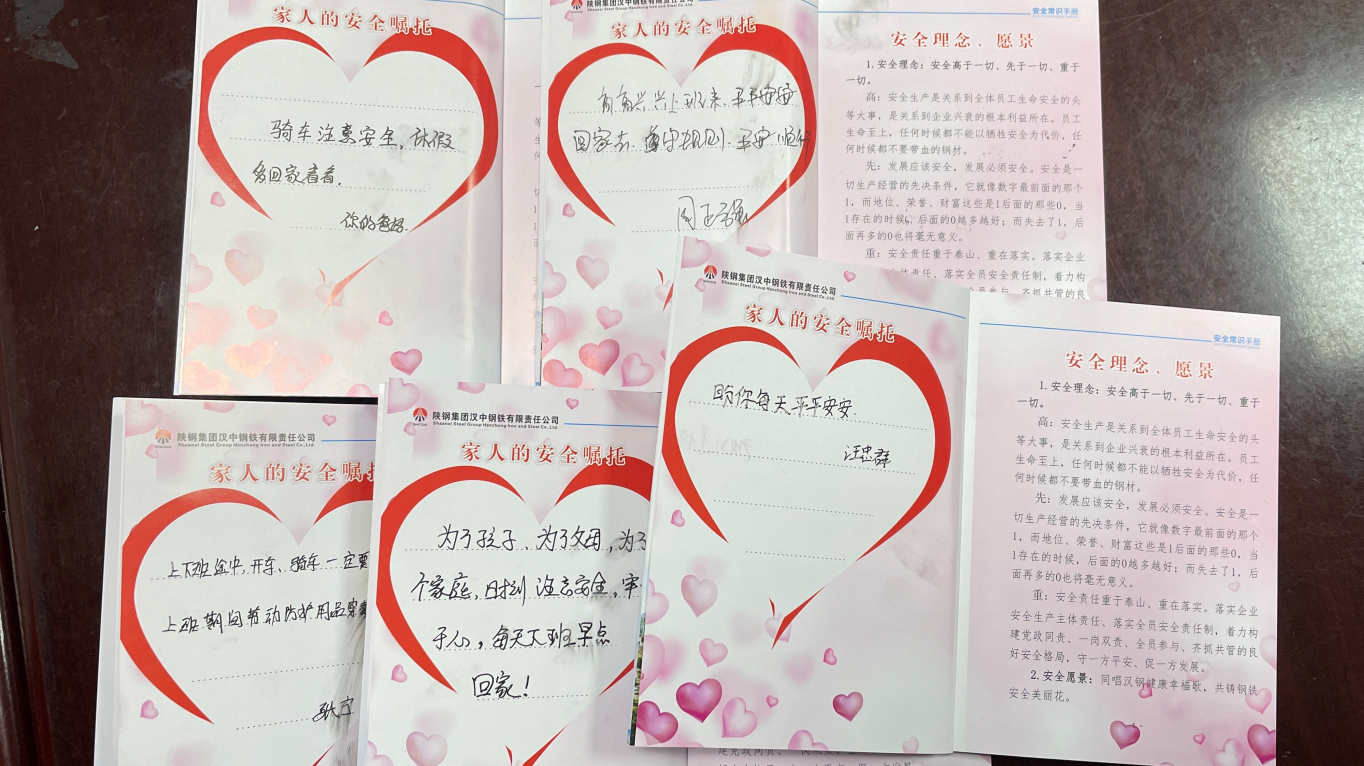 家人的安全嘱托
骑车注意安全，休假
多回家看看．
你的爸妈
陕钢集团汉中钢铁有限责任公司
Shaanxi Steel Group Hanzhong Iron and Steel Co.,Ltd.
家人的安全嘱托
高高兴兴上班来，平平安安
回家去．遵守规则．平安顺行
周正强
安全常识手册
安全理念、愿景
1.安全理念：安全高于一切、先于一切、重于
一切。
高：安全生产是关系到全体员工生命安全的头
等大事，是关系到企业兴衰的根本利益所在。员工
生命至上，任何时候都不能以牺牲安全为代价，任
何时候都不要带血的钢材。
先：发展应该安全，发展必须安全。安全是一
切生产经营的先决条件，它就像数字最前面的那个
1，而地位、荣誉、财富这些是1后面的那些0，当
1存在的时候，后面的0越多越好；而失去了1，后
面再多的0也将毫无意义。
重：安全责任重于泰山、重在落实。落实企业
体责任、落实全员安全责任制，着力构
全员参与、齐抓共管的良
陕钢集团汉中钢铁有限责任公司
Shaanxi Steel Group Hanzhong Iron and Steel Co.,Ltd.
家人的安全嘱托
上下班途中，开车、骑车一定要
上班期间劳动防护用品穿戴
陕钢集团汉中钢铁有限责任公司
Shaanxi Steel Group Hanzhong Iron and Steel Co.,Ltd.
家人的安全嘱托
为了孩子、为了父母，为了
个家庭，时刻注意安全，牢
于心，每天下班早点
回家！
陕钢集团汉中钢铁有限责任公司
Shaanxi Steel Group Hanzhong Iron and Steel Co.,Ltd.
家人的安全嘱托
盼你每天平平安安．
汪忠群
安全常识手册
安全理念、愿景
1.安全理念：安全高于一切、先于一切、重于
一切。
高：安全生产是关系到全体员工生命安全的头
等大事，是关系到企业兴衰的根本利益所在。员工
生命至上，任何时候都不能以牺牲安全为代价，任
何时候都不要带血的钢材。
先：发展应该安全，发展必须安全。安全是一
切生产经营的先决条件，它就像数字最前面的那个
1，而地位、荣誉、财富这些是1后面的那些0，当
1存在的时候，后面的0越多越好；而失去了1，后
面再多的0也将毫无意义。
重：安全责任重于泰山、重在落实。落实企业
安全生产主体责任、落实全员安全责任制，着力构
建党政同责、一岗双责、全员参与、齐抓共管的良
好安全格局，守一方平安、促一方发展。
2.安全愿景：同唱汉钢健康幸福歌，共铸钢铁
安全美丽花。